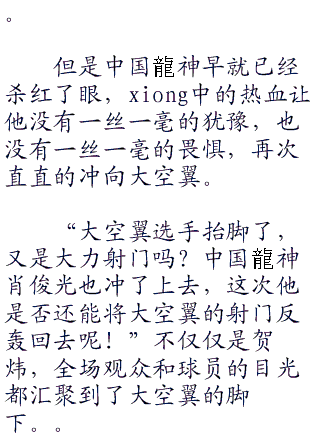 。
但是中国龍神早就已经
杀红了眼，xiong中的热血让
他没有一丝一毫的犹豫，也
没有一丝一毫的畏惧，再次
直直的冲向大空翼。
“大空翼选手抬脚了，
又是大力射门吗？中国龍神
肖俊光也冲了上去，这次他
是否还能将大空翼的射门反
轰回去呢！”不仅仅是贺
炜，全场观众和球员的目光
都汇聚到了大空翼的脚
下。。